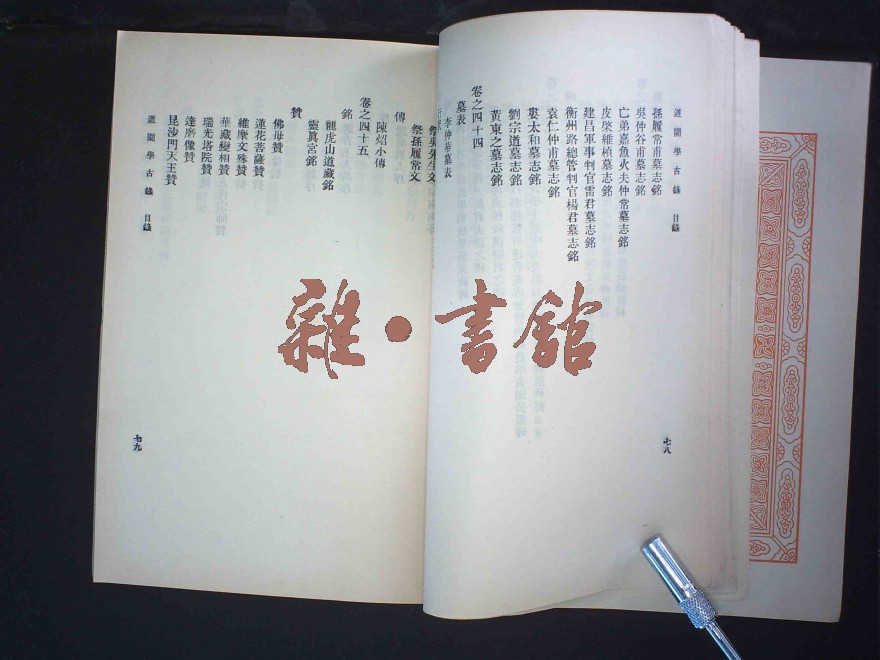 道園學古錄 目錄
孫履常甫墓志銘
吳仲谷甫墓志銘
亡弟嘉魚大夫仲常墓志銘
皮棨維楨墓志銘
建昌軍事判官雷君墓志銘
衡州路總管判官楊君墓志銘
袁仁仲甫墓志銘
婁太和墓志銘
劉宗道墓志銘
黃東之墓志銘
卷之四十四
墓表
李仲華墓表
七八
祭吳先生文
祭孫履常文
傳
陳炤小傳
卷之四十五
銘
龍虎山道藏銘
靈眞宮銘
贊
佛母贊
蓮花菩薩贊
維摩文殊贊
華藏變相贊
瑞光塔院贊
達磨像贊
毘沙門天王贊
道園學古錄 目錄
七九
雜·書館